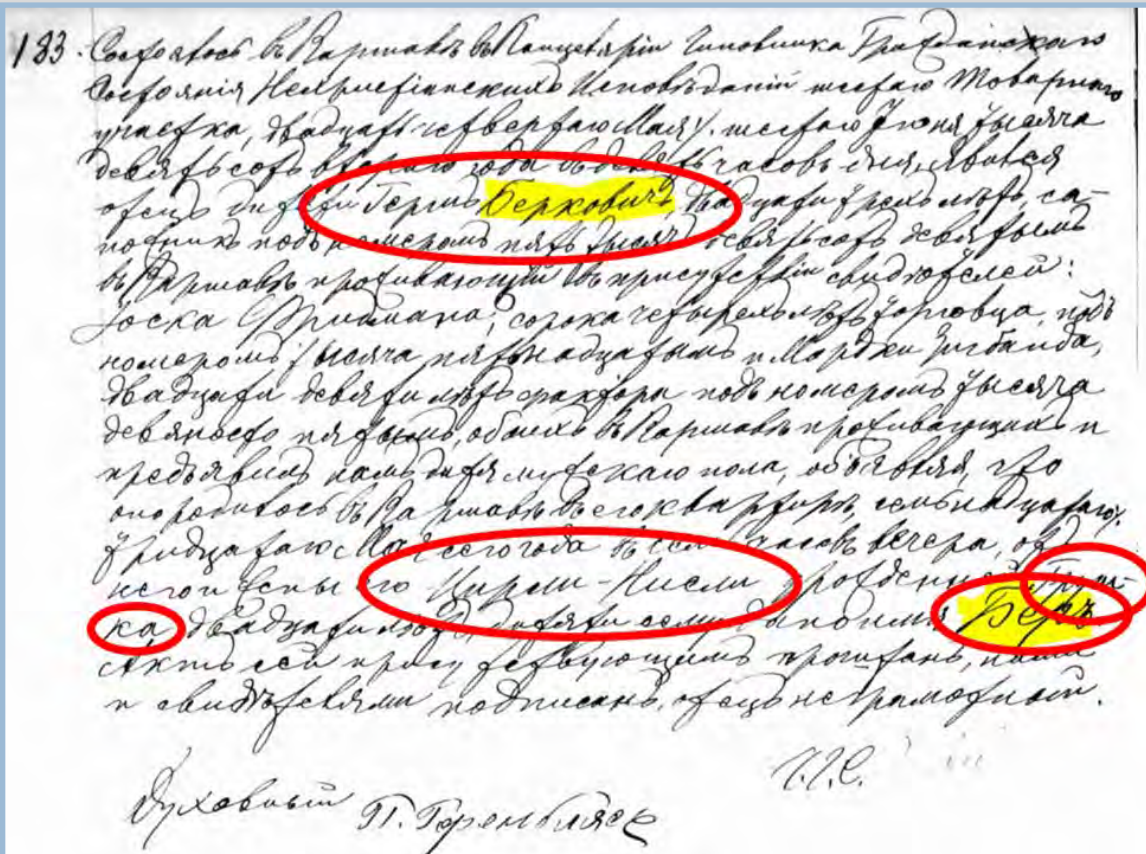 183. Состоялось въ Варшавѣ въ Канцеляріи Чиновника Гражданскаго
Состоянія Нехристіанскихъ Исповѣданій шестаго Товарнаго
участка, двадцать четвертаго Мая/ шестаго Іюня тысяча
девятьсотъ втораго года въ часовъ дня, явился
отецъ дитяти Герш Берковичъ, двадцати трехъ лѣтъ, са-
пожникъ подъ номеромъ пять тысячъ девятьсотъ девятымъ
въ Варшавѣ проживающій въ присутствіи свидѣтелей:
Іоска Фридмана, сорока четырехъ лѣтъ торговца, подъ
номеромъ тысяча пятьнадцатымъ и Мордки
двадцати девяти лѣтъ фактора подъ номеромъ тысяча
девяносто пятымъ, обоихъ въ Варшавѣ проживающихъ и
предъявилъ намъ дитя мужескаго пола, объявляя, что
оно родилось въ Варшавѣ въ его квартирѣ, семьнадцатаго/
тридцатаго Мая сего года въ часовъ вечера, отъ
него и жены его Цирли-Нисли урожденной
ка двадцати лѣтъ, дитяти сему дано имя Беръ
Актъ сей присутствующимъ прочитанъ, нами
и свидѣтелями подписанъ, отецъ неграмотный.
Духовный П.